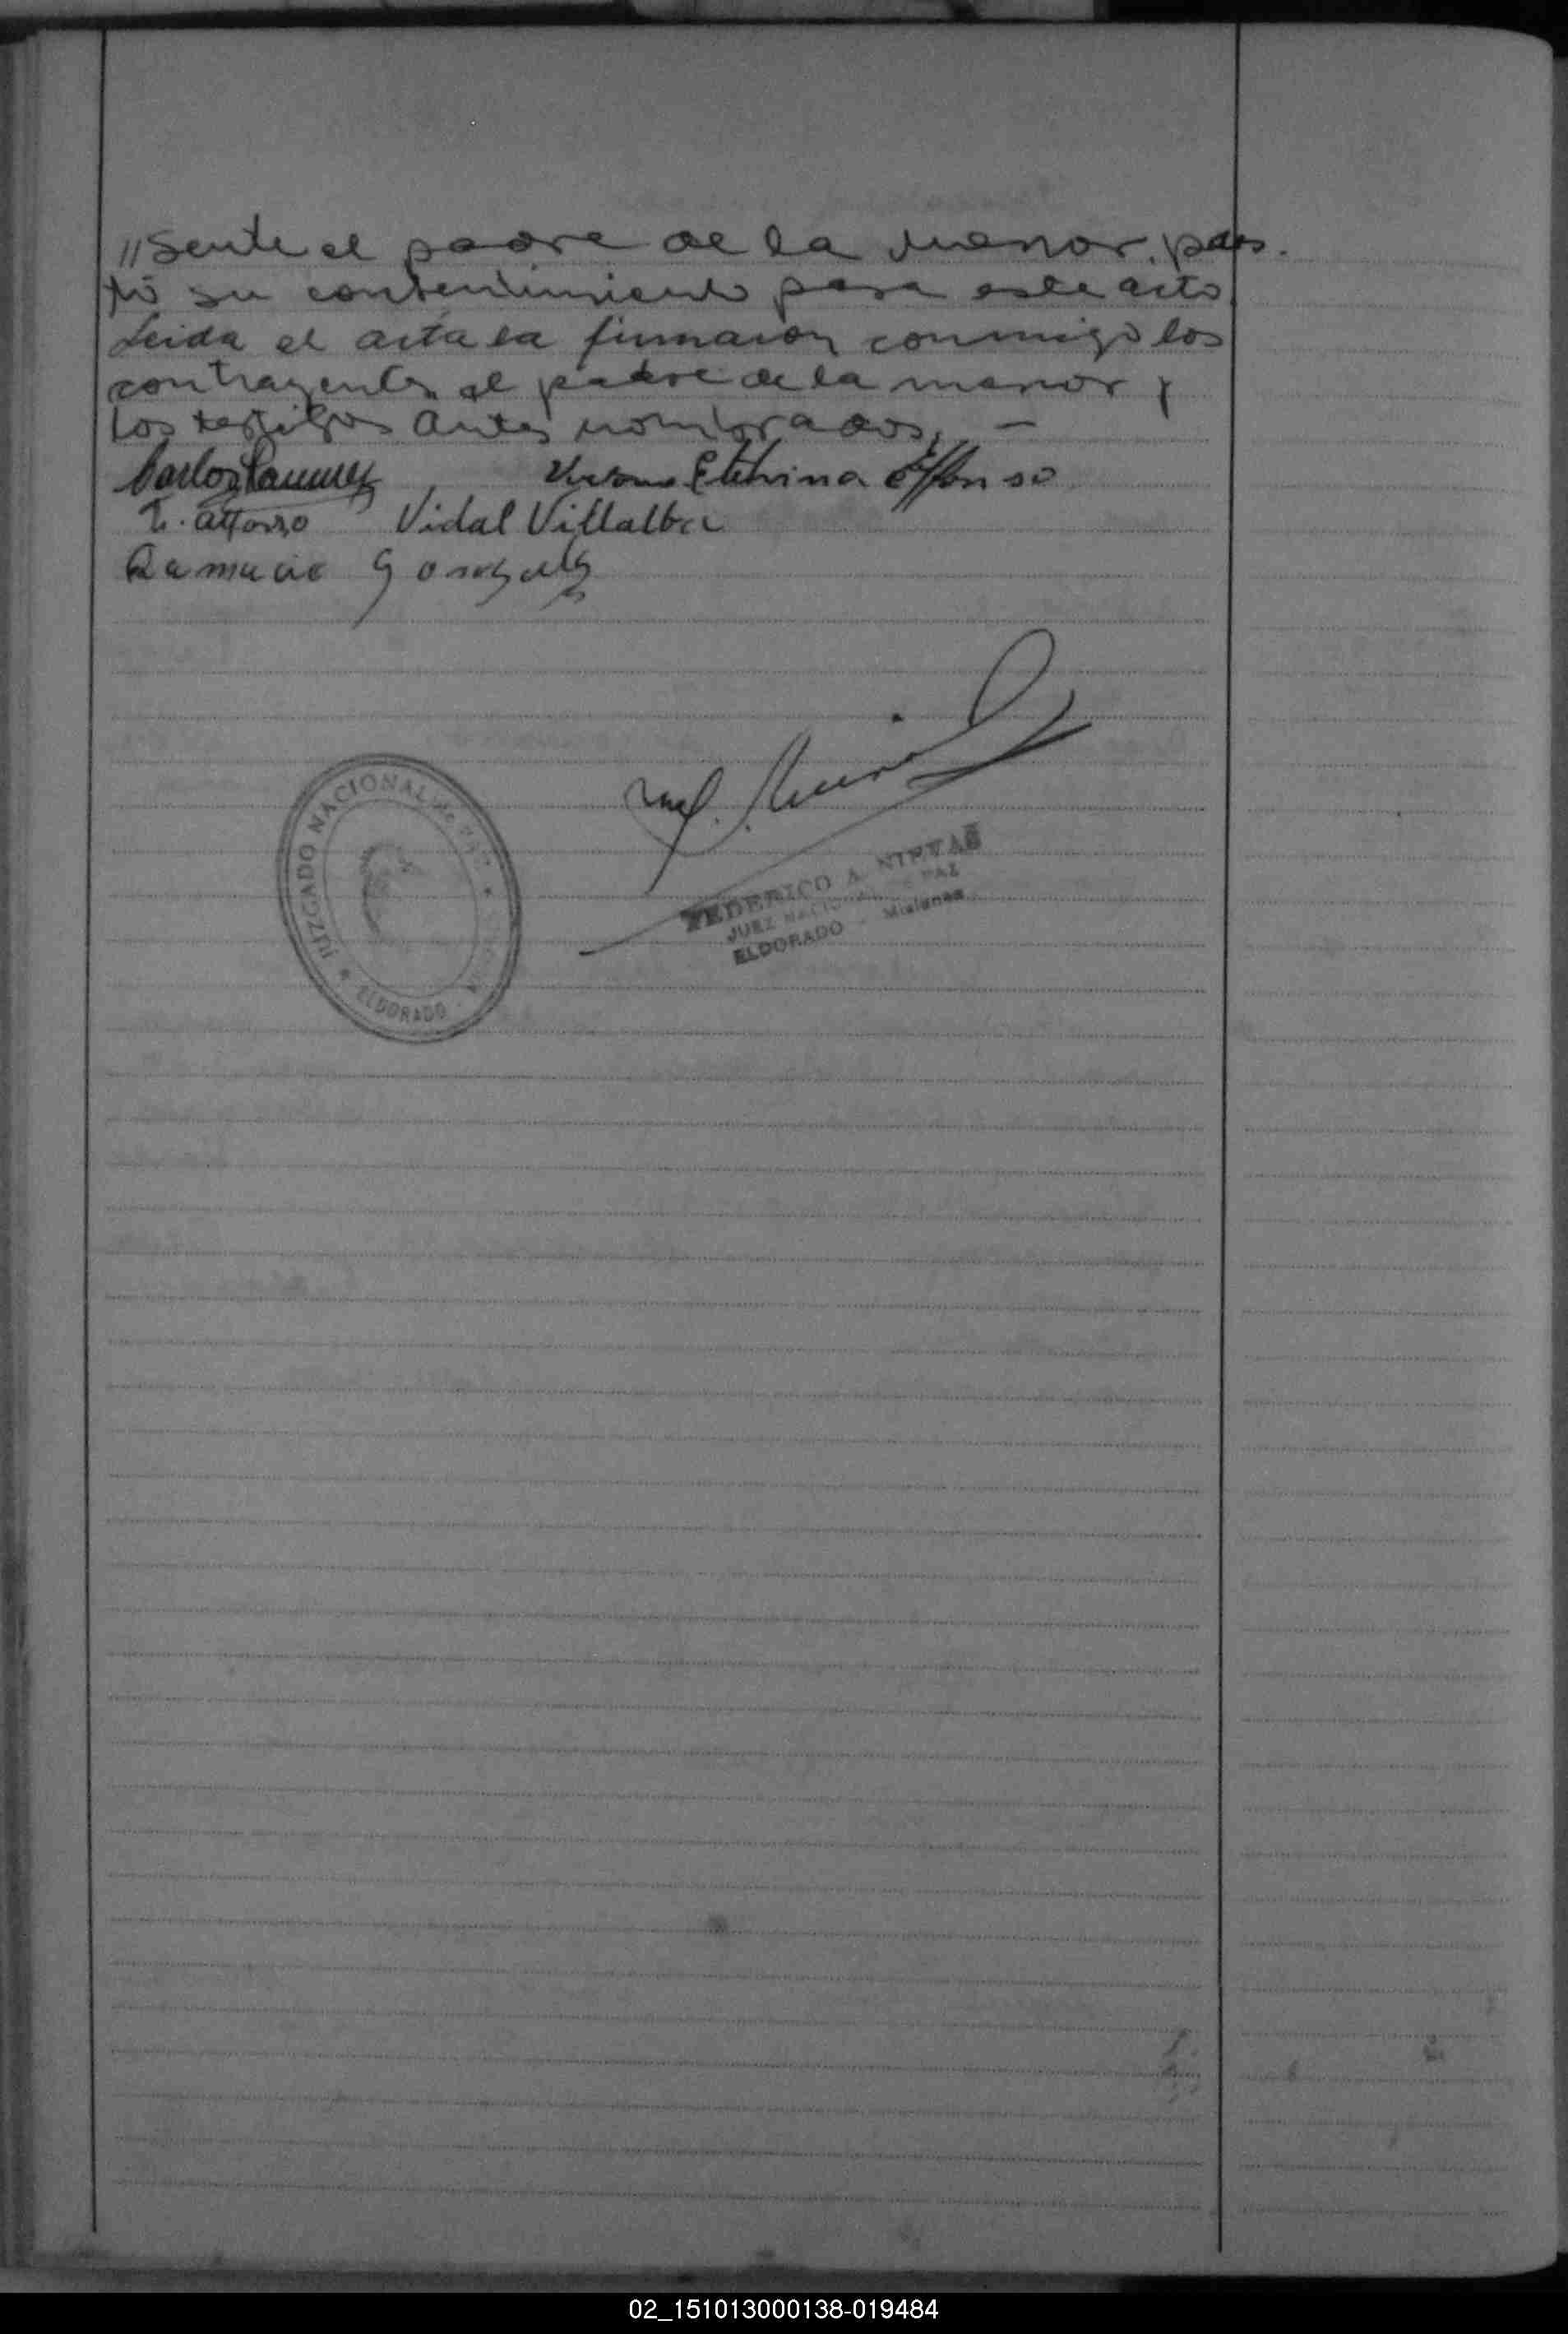 //Sente el padre de la menor, pres-
tó su consentimiento para este acto.
Leida el acta la firmaron conmigo los
contrayentes, el padre de la menor y
los testigos antes nombrados. —
Carlos Ramirez Etelvina Alfonso
T. Alfonso Vidal Villalba
Ramucio Gonzalez
JUZGADO NACIONAL DE PAZ
ELDORADO
FEDERICO A. NIEVAS
JUEZ NACIONAL DE PAZ
ELDORADO - Misiones
02_151013000138-019484